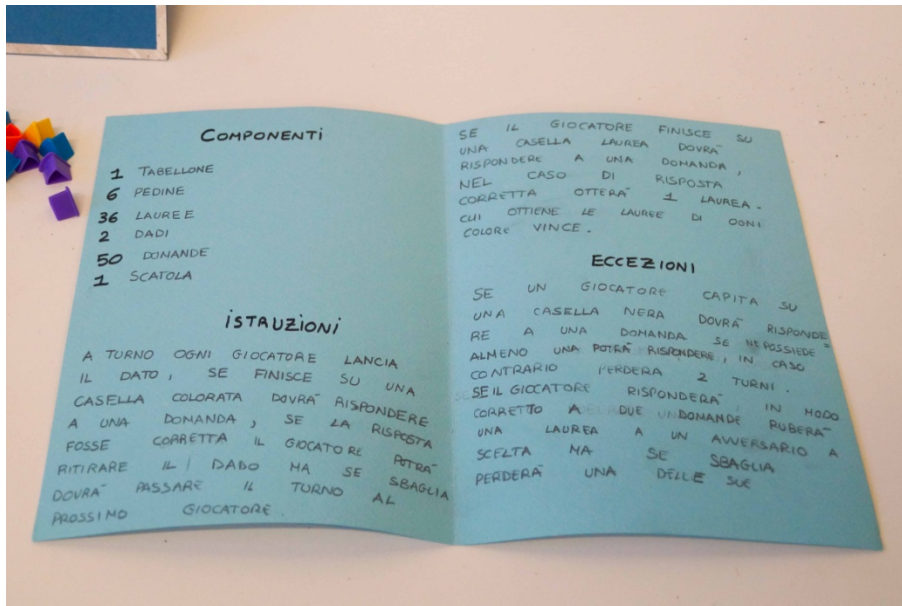 COMPONENTI
1 TABELLONE
6 PEDINE
36 LAUREE
2 DADI
50 DOMANDE
1 SCATOLA
iSTRUZIONI
A TURNO OGNI GIOCATORE LANCIA
IL DATO, SE FINISCE SU UNA
CASELLA COLORATA DOVRA' RISPONDERE
A UNA DOMANDA, SE LA RISPOSTA
FOSSE CORRETTA IL GIOCATORE POTRA'
RITIRARE IL DADO MA SE SBAGLIA
DOVRA' PASSARE IL TURNO AL
PROSSIMO GIOCATORE.
SE IL GIOCATORE FINISCE SU
UNA CASELLA LAUREA DOVRA'
RISPONDERE A UNA DOMANDA,
NEL CASO DI RISPOSTA
CORRETTA OTTERA' 1 LAUREA.
CUI OTTIENE LE LAUREE DI OGNI
COLORE VINCE.
ECCEZIONI
SE UN GIOCATORE CAPITA SU
UNA CASELLA NERA DOVRA' RISPONDE-
RE A UNA DOMANDA SE NE POSSIEDE
ALMENO UNA POTRA' RISPONDERE, IN CASO
CONTRARIO PERDERA' 2 TURNI.
SE IL GIOCATORE RISPONDERA' IN MODO
CORRETTO A DUE DOMANDE RUBERA'
UNA LAUREA A UN AVVERSARIO A
SCELTA MA SE SBAGLIA
PERDERA' UNA DELLE SUE